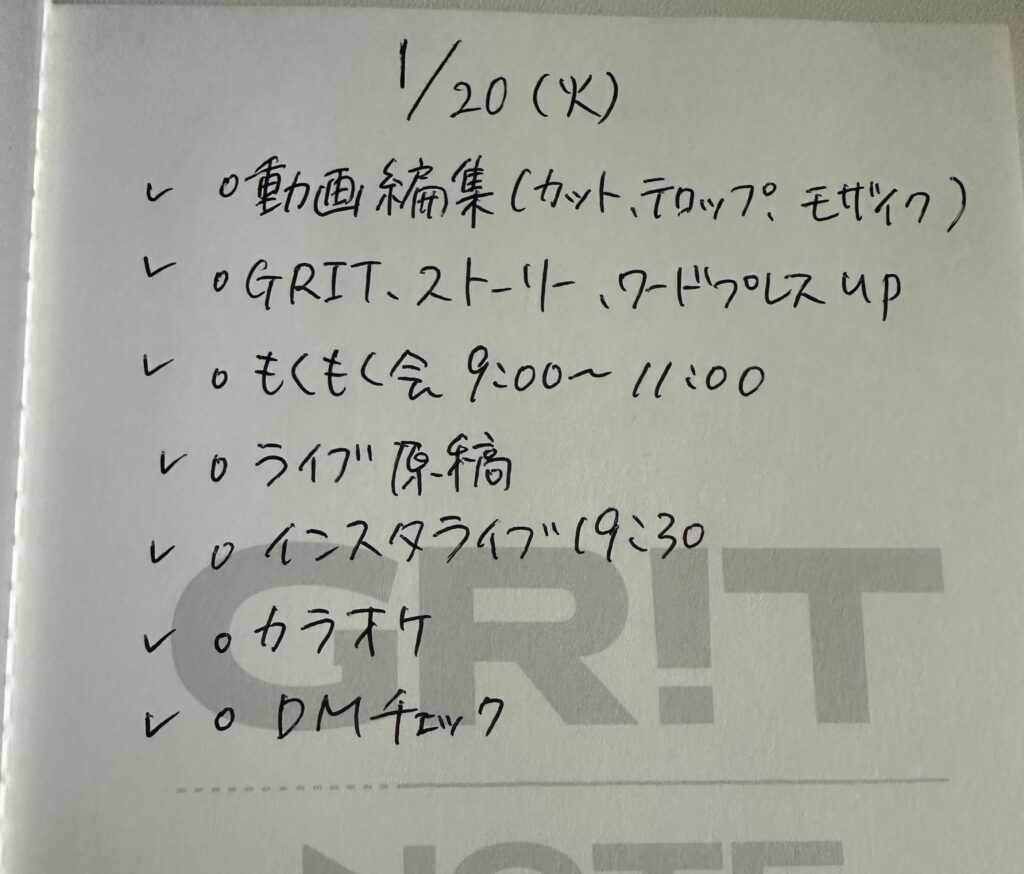 1/20 (火)
✓ ○動画編集(カット、テロップ、モザイク)
✓ ○GRIT、ストーリー、ワードプレスup
✓ ○もくもく会 9:00〜11:00
✓ ○ライブ原稿
✓ ○インスタライブ19:30
✓ ○カラオケ
✓ ○DMチェック
GR!T
NOTE